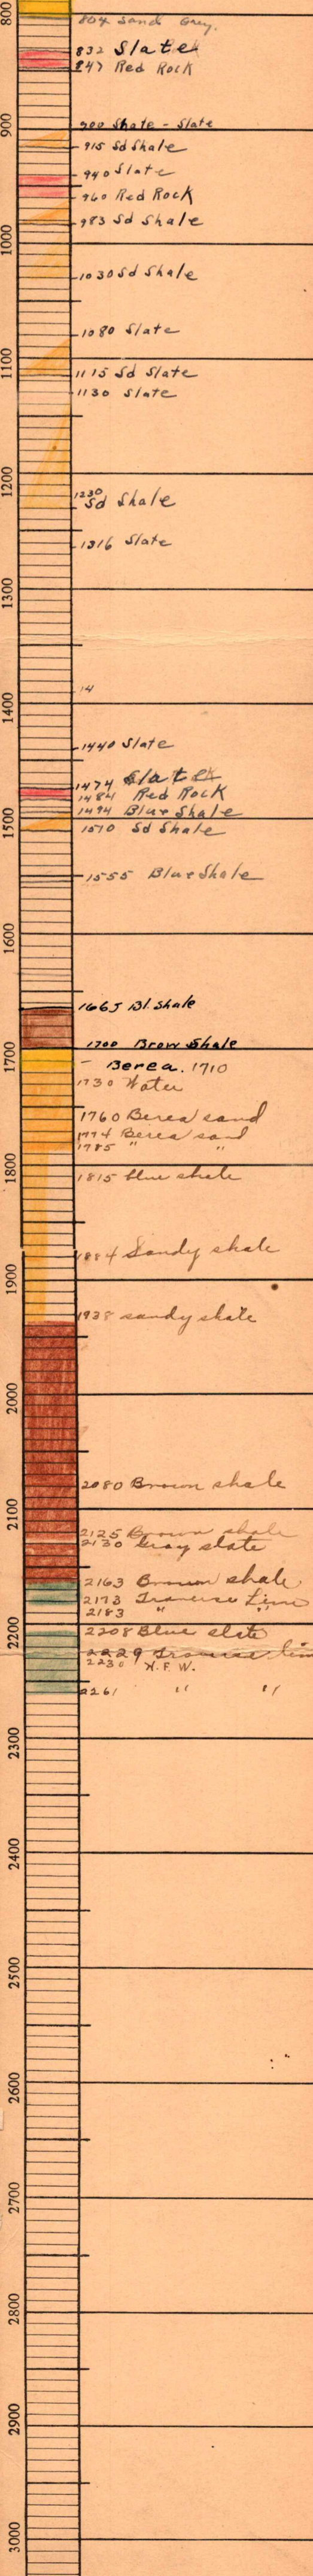 800
804 Sand Grey.
832 Slate
847 Red Rock
900
900 Shale - Slate
915 Sd Shale
940 Slate
960 Red Rock
983 Sd Shale
1000
1030 Sd Shale
1080 Slate
1100
1115 Sd Slate
1130 Slate
1200
1230
Sd Shale
1316 Slate
1300
14
1400
1440 Slate
1474 Slate
1484 Red Rock
1494 Blue Shale
1500
1510 Sd Shale
1555 Blue Shale
1600
1665 Bl. Shale
1700 Brow Shale
1700
- Berea. 1710
1730 Water
1760 Berea sand
1774 Berea sand
1785 " "
1800
1815 blue shale
1884 Sandy shale
1900
1938 sandy shale
2000
2080 Brown shale
2100
2125 Brown shale
2130 Gray slate
2163 Brown shale
2173 Traverse Lime
2183 " "
2200
2208 Blue slate
2229 Traverse lim
2230 H.F.W.
2261 " "
2300
2400
2500
2600
2700
2800
2900
3000